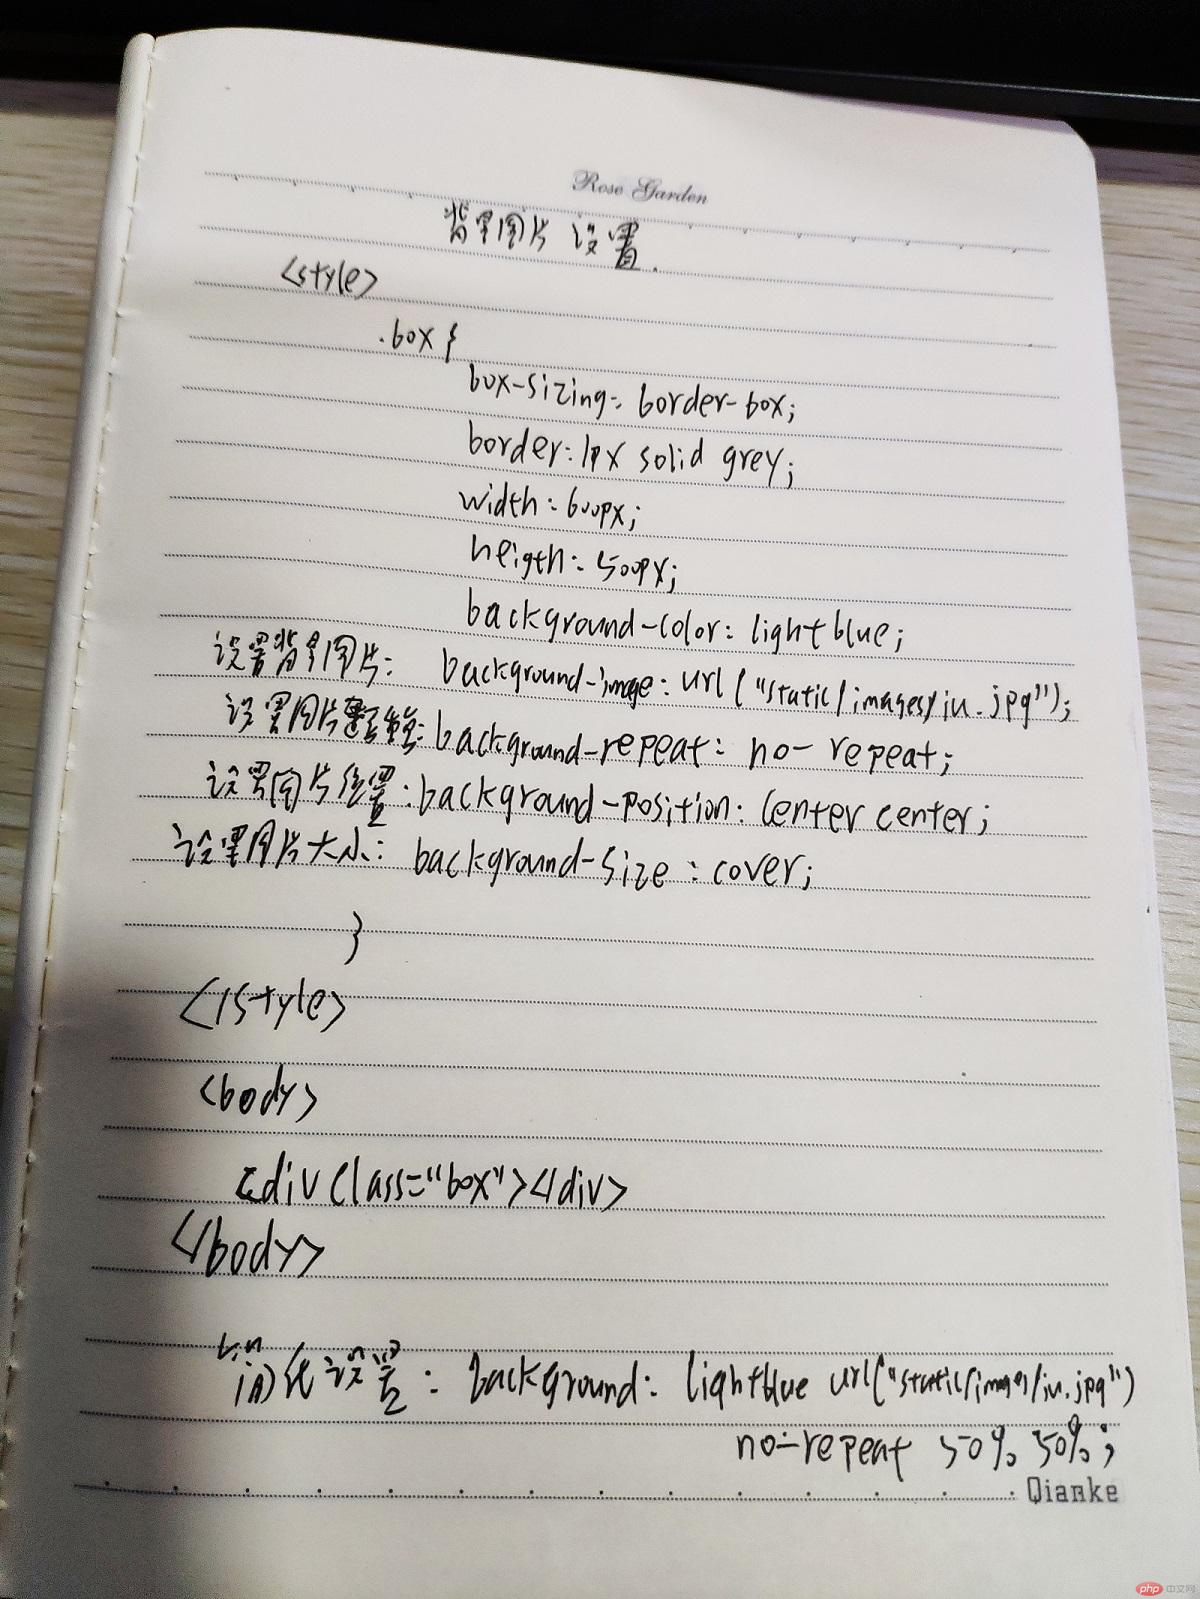 Rose Garden
背景图片设置.
<style>
.box {
box-sizing: border-box;
border: 1px solid grey;
width: 600px;
heigth: 500px;
background-color: lightblue;
设置背景图片: background-image: url("static/images/iu.jpg");
设置图片重复: background-repeat: no-repeat;
设置图片位置: background-position: center center;
设置图片大小: background-size: cover;
}
</style>
<body>
<div class="box"></div>
</body>
简化设置: background: lightblue url("static/images/iu.jpg")
no-repeat 50% 50%;
Qianke
php 中文网